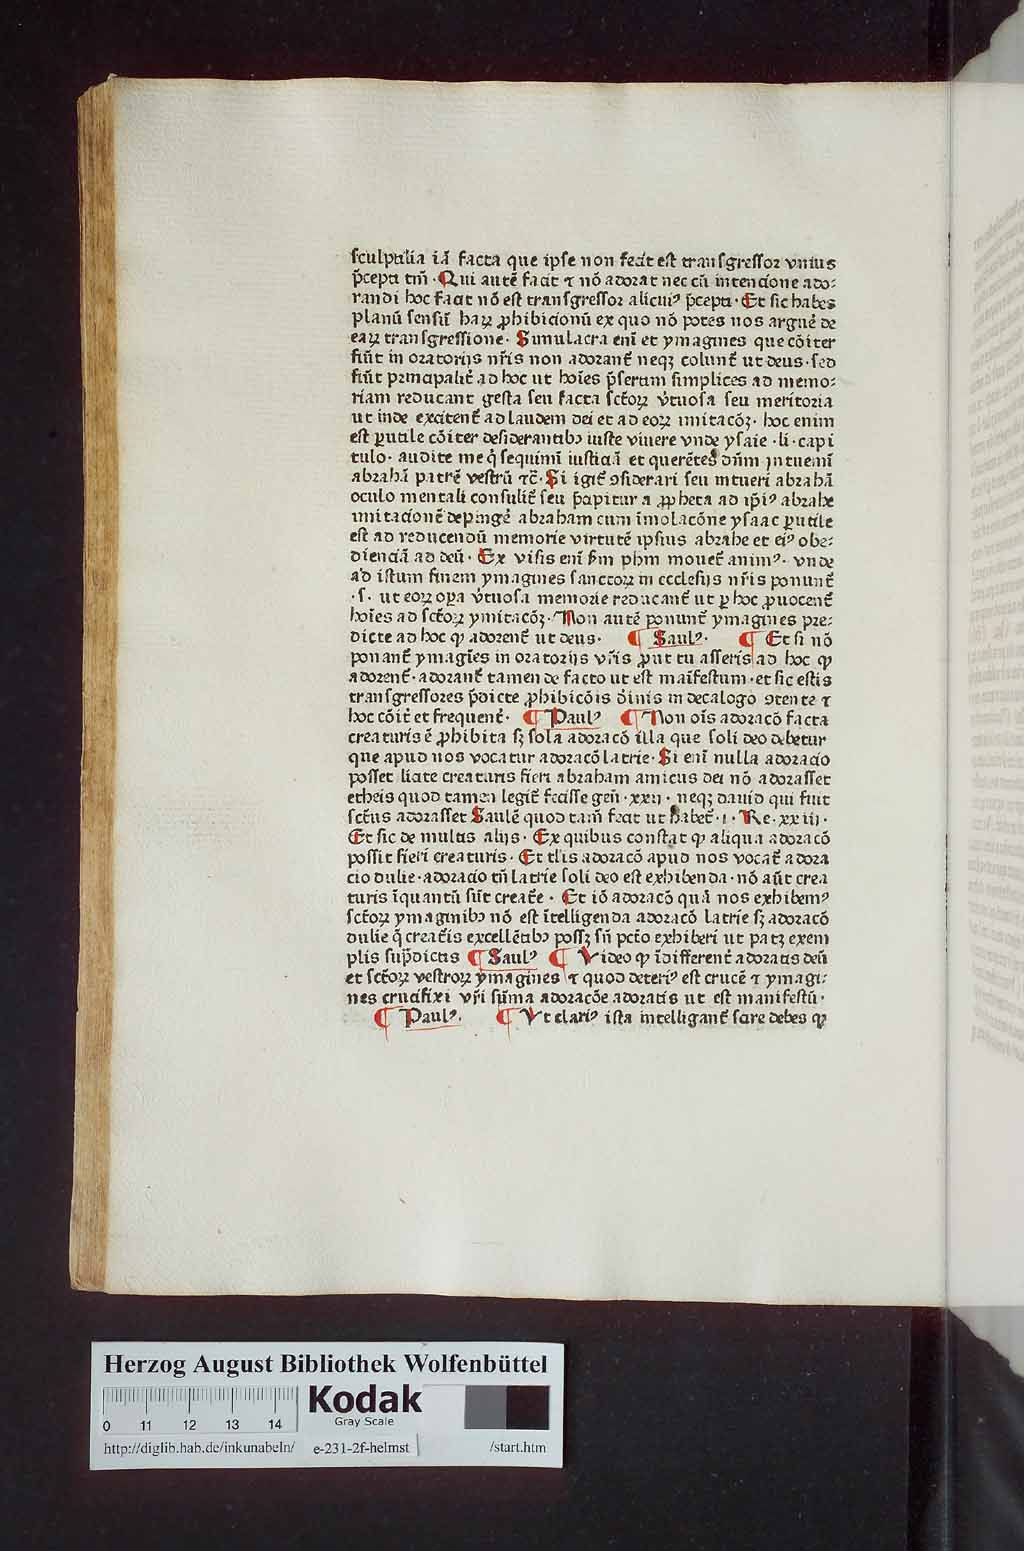 sculptilia iā facta que ipse non fecit est transgressor vnius
p̄cepti tm̄ · Qui autē facit ⁊ nō adorat nec cū intencione ado-
randi hoc facit nō est transgressor alicui⁹ p̄cepti · Et sic habes
planū sensū haꝝ ꝓhibicionū ex quo nō potes nos argue᷑ de
eaꝝ transgressione · Simulacra eni᷑ et ymagines que cōiter
fiūt in oratorijs nr̄is non adorant᷑ neqꝫ colunt᷑ ut deus · sed
fiūt principalit᷑ ad hoc ut hoīes p̄sertim simplices ad memo-
riam reducant gesta seu facta sct̄oꝝ v᷑tuosa seu meritoria
ut inde excitent᷑ ad laudem dei et ad eoꝝ imitacōꝫ · hoc enim
est ꝑutile cōiter desiderantibꝰ iuste viuere vnde ysaie · li · capi
tulo · audite me q̇ sequimī iusticiā et querētes dūm intuemī
abrahā patrē vestrū ⁊c̄ · Si igit᷑ ꝯsiderari seu intueri abrahā
oculo mentali consulit᷑ seu p̄cipitur a ꝓpheta ad ip̄i⁹ abrahe
imitacionē depinge᷑ abraham cum īmolacōne ysaac ꝑutile
est ad reducendū memorie virtutē ipsius abrahe et ei⁹ obe-
dienciā ad deū · Ex visis eni᷑ s̄m ph̄m mouet᷑ anim⁹ · vnde
ad istum finem ymagines sanctoꝝ in ecclesijs nr̄is ponunt᷑
· s · ut eoꝝ oꝑa v᷑tuosa memorie reducant᷑ ut ꝑ hoc ꝓuocent᷑
hoīes ad sct̄oꝝ ymitacōꝫ · Non autē ponunt᷑ ymagines pre-
dicte ad hoc ꝙ adorent᷑ ut deus · ¶ Saul⁹ · ¶ Et si nō
ponant᷑ ymagīes in oratorijs vr̄is ꝓut tu asseris ad hoc ꝙ
adorent᷑ · adorant᷑ tamen de facto ut est maīfestum · et sic estis
transgressores p̄dicte ꝓhibicōis diīnis in decalogo ꝯtente ⁊
hoc cōit᷑ et frequent᷑ · ¶ Paul⁹ ¶ Non oīs adoracō facta
creaturis ē ꝓhibita sꝫ sola adoracō illa que soli deo debetur
que apud nos vocatur adoracō latrie · Si eni᷑ nulla adoracio
posset licite creaturis fieri abraham amicus dei nō adorasset
etheis quod tamen legit᷑ fecisse gen̄ · xxij · neqꝫ dauid qui fuit
sct̄us adorasset Saulē quod tam̄ fecit ut habet᷑ · i · Re · xxiiij ·
Et sic de multis alijs · Ex quibus constat ꝙ aliqua adoracō
possit fieri creaturis · Et tl̄is adoracō apud nos vocat᷑ adora
cio dulie · adoracio tn̄ latrie soli deo est exhibenda · nō aūt crea
turis īquantū sūt create · Et iō adoracō quā nos exhibem⁹
sct̄oꝝ ymaginibꝰ nō est ītelligenda adoracō latrie sꝫ adoracō
dulie q̄ creat᷑is excellētibꝰ possꝫ sn̄ pct̄o exhiberi ut patꝫ exem
plis sup̄dictis ¶ Saul⁹ ¶ Video ꝙ īdifferent᷑ adoratis deū
et sct̄oꝝ vestroꝝ ymagines ⁊ quod deteri⁹ est crucē ⁊ ymagi-
nes crucifixi vr̄i sūma adoracōe adoratis ut est manifestū ·
¶ Paul⁹ · ¶ Vt clari⁹ ista intelligant᷑ scire debes ꝙ
Herzog August Bibliothek Wolfenbüttel
Kodak
Gray Scale
0 11 12 13 14
http://diglib.hab.de/inkunabeln/ e-231-2f-helmst /start.htm